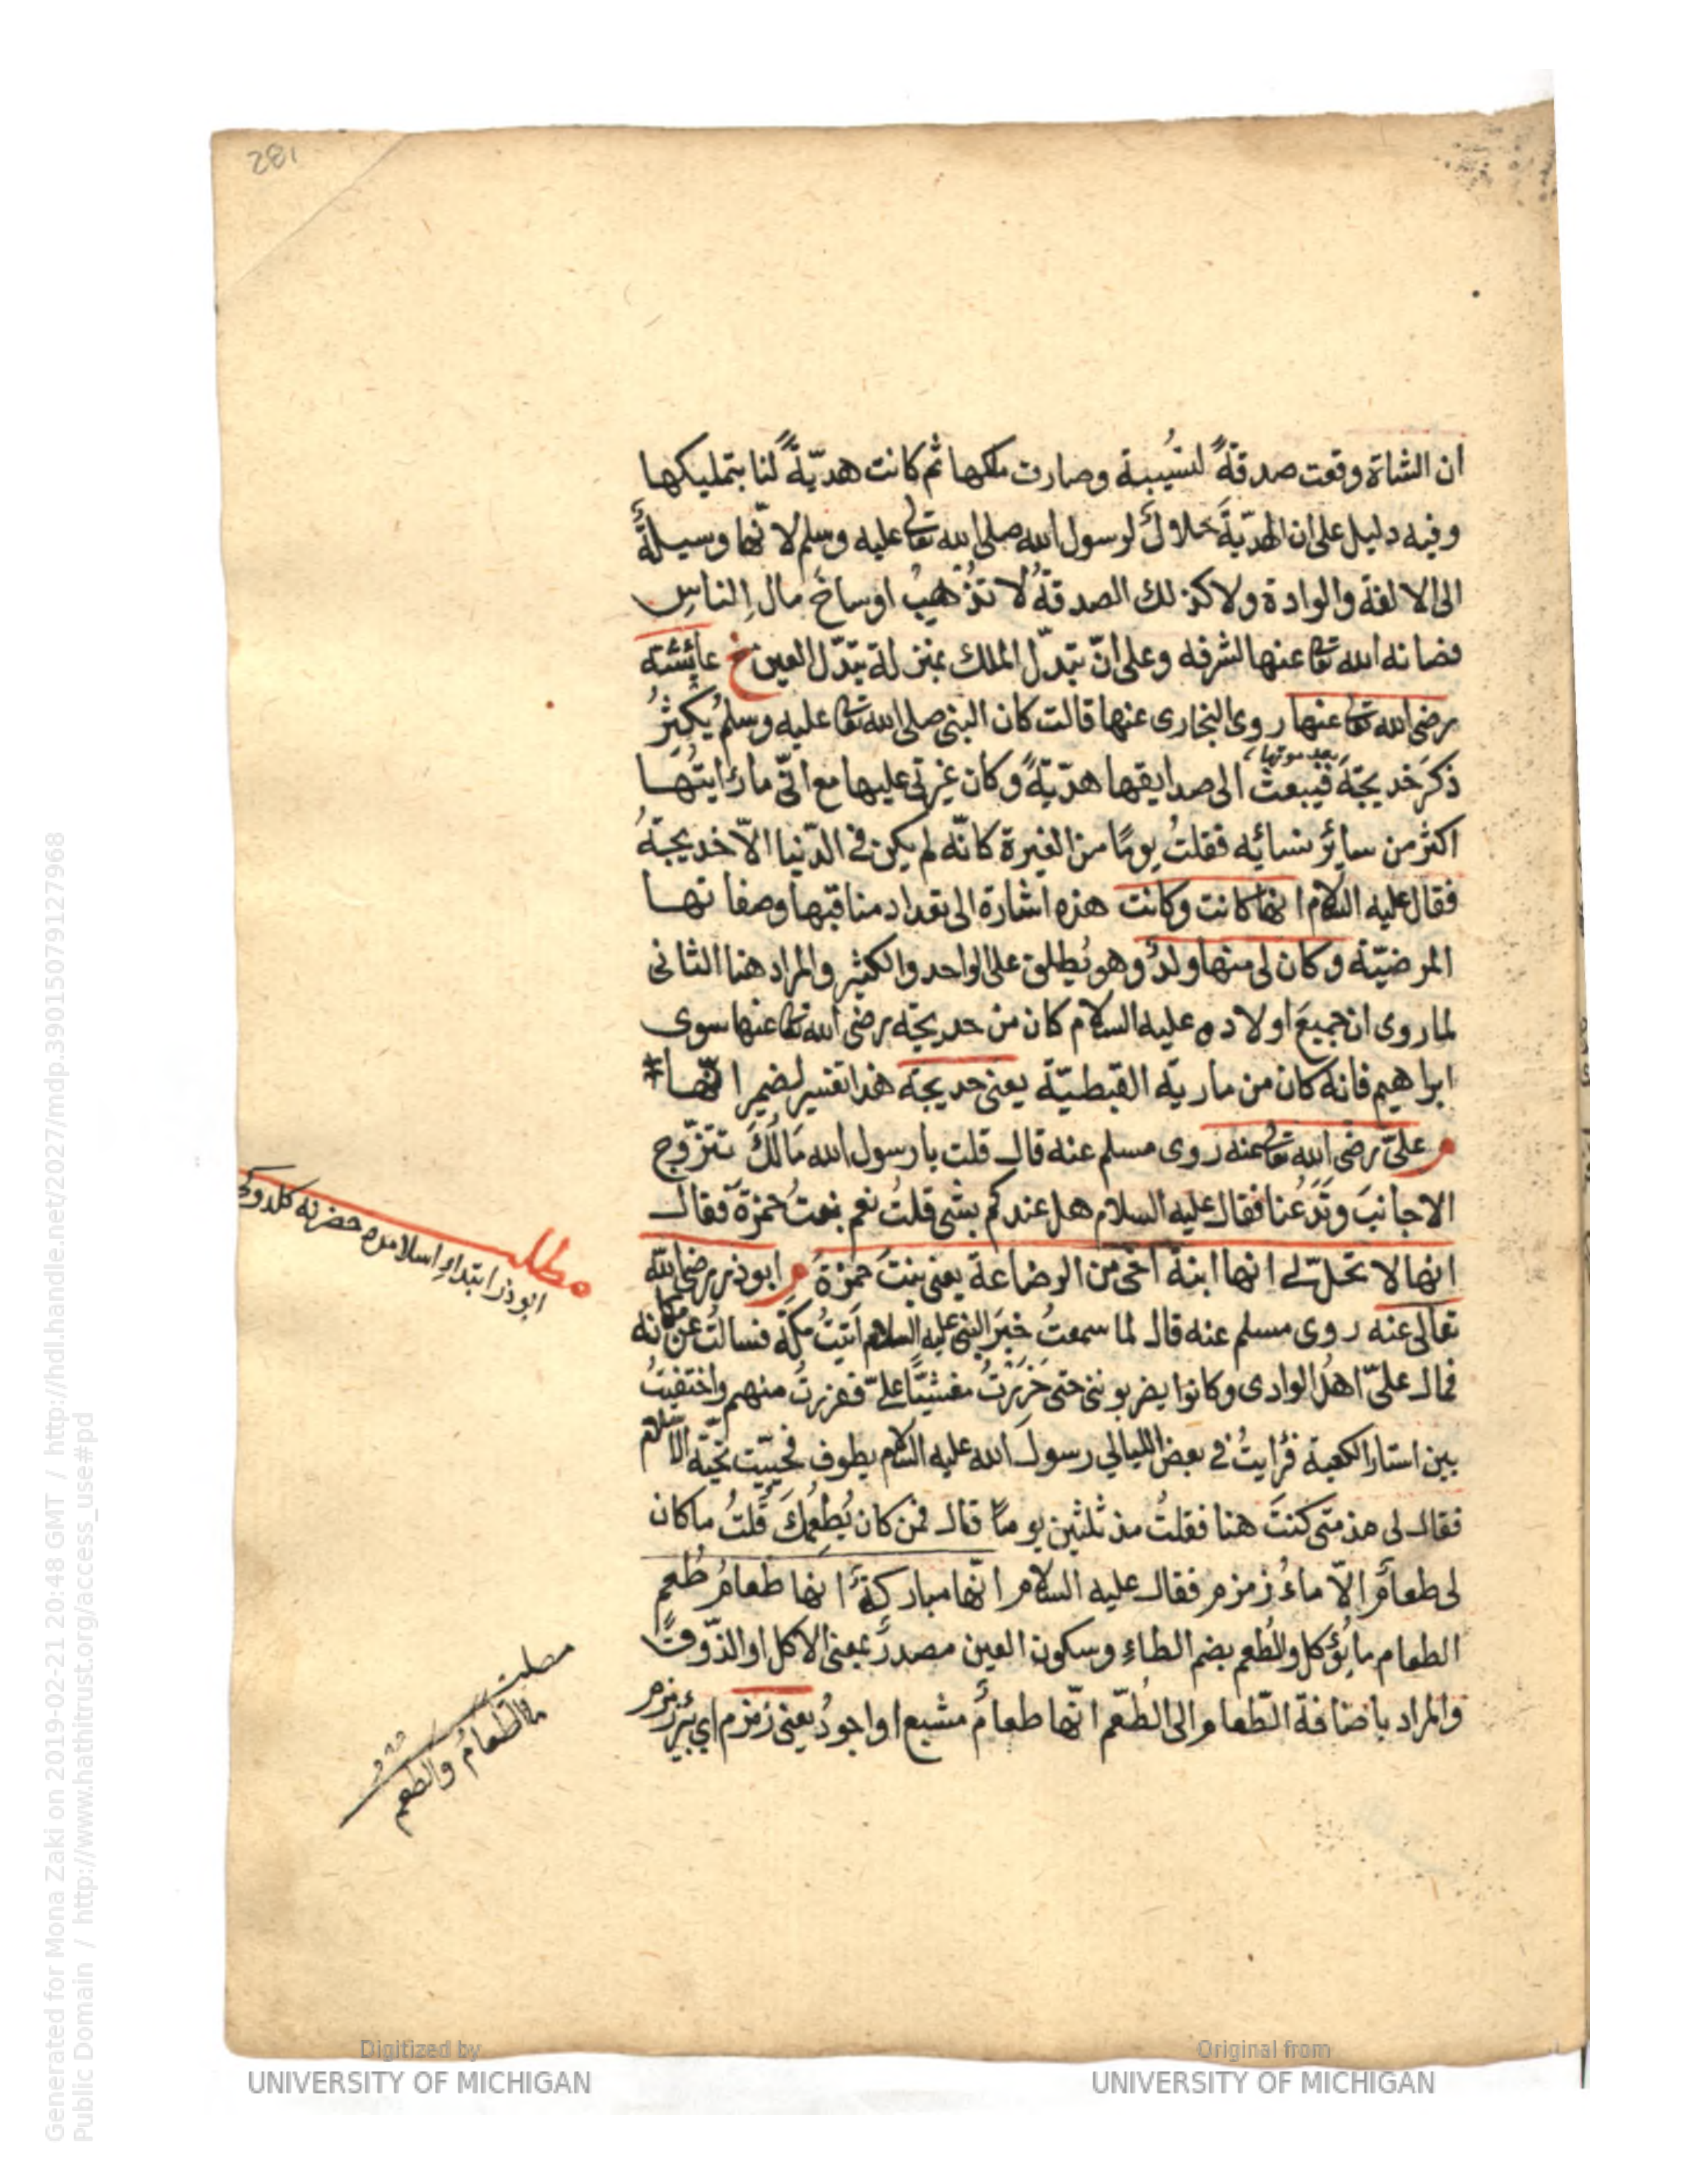 281
ان الشاة وقعت صدقةً لنسيبة وصارت ملكها ثم كانت هديّةً لنا بتمليكها
وفيه دليل على ان الهديّةَ حلالٌ لرسول الله صلى الله تعا عليه وسلم لانّها وسيلةٌ
الى الالفة والوادة ولا كذلك الصدقةُ لا تذهب اوساخَ مال الناس
فصانه الله تعا عنها لشرفه وعلى انّ تبدّل الملك بمنزلة تبدّل العين خ عايشة
رضى الله تعا عنها روى البخارى عنها قالت كان النبى صلى الله تعا عليه وسلم يُكثِرُ
ذكرَ خديجةَ فيبعث الى صدايقها هديّةً وكان غيرتى عليها مع انّى ما رايتُها
بعد موتها
اكثر من سائر نسائه فقلتُ يومًا من الغيرة كانّه لم يكن فى الدّنيا الّا خديجةُ
فقال عليه السلام انها كانت وكانت هذه اشارة الى تعداد مناقبها وصفاتها
المرضيّة وكان لى منها ولدٌ وهو يُطلق على الواحد والكثير والمراد هنا الثانى
لما روى ان جميعَ اولاده عليه السلام كان من خديجة رضى الله تعا عنها سوى
ابراهيم فانه كان من مارية القبطيّة يعنى خديجة هذا تفسير لضمير انّها
م علىّ رضى الله تعا عنه روى مسلم عنه قال قلت يا رسول الله مَالَكَ تتزوّج
الاجانبَ وتَدَعُنا فقال عليه السلام هل عندكم بشى قلتُ نعم بنتُ حمزةَ فقال
انها لا تحلّ لى انها ابنة اخى من الرضاعة يعنى بنتَ حمزةَ م ابوذر رضى الله
تعالى عنه روى مسلم عنه قال لما سمعتُ خبرَ النبى عليه السلام اتيتُ مكّة فسالتُ عن مكانه
فمال علىّ اهلُ الوادى وكانوا يضربوننى حتى خَرَرْتُ مغشيًّا علىّ ففررتُ منهم واختفيتُ
بين استار الكعبة فرايتُ فى بعض الليالي رسولَ الله عليه السلام يطوف فحيّيت تحيّة الاسلام
فقال لى مذ متى كنتَ هنا فقلتُ مذ ثلثين يومًا قال فمن كان يُطعِمُكَ قلتُ ما كان
لى طعامٌ الّا ماءُ زمزم فقال عليه السلام انّها مباركةٌ انها طعامُ طُعم
الطعام ما يُؤكل والطُعم بضم الطاءِ وسكون العين مصدرٌ بمعنى الاكل او الذّوق
والمراد باضافة الطّعام الى الطُعم انّها طعامٌ مشبع او اجودُ يعنى زمزم اي بئرَ زمزم
مطلب
ابوذر ابتداءِ اسلامده حضرته كلدوكى
مطلب
ما الطعامُ والطعم
Digitized by
UNIVERSITY OF MICHIGAN
Original from
UNIVERSITY OF MICHIGAN
Generated for Mona Zaki on 2019-02-21 20:48 GMT / http://hdl.handle.net/2027/mdp.39015079127968
Public Domain / http://www.hathitrust.org/access_use#pd